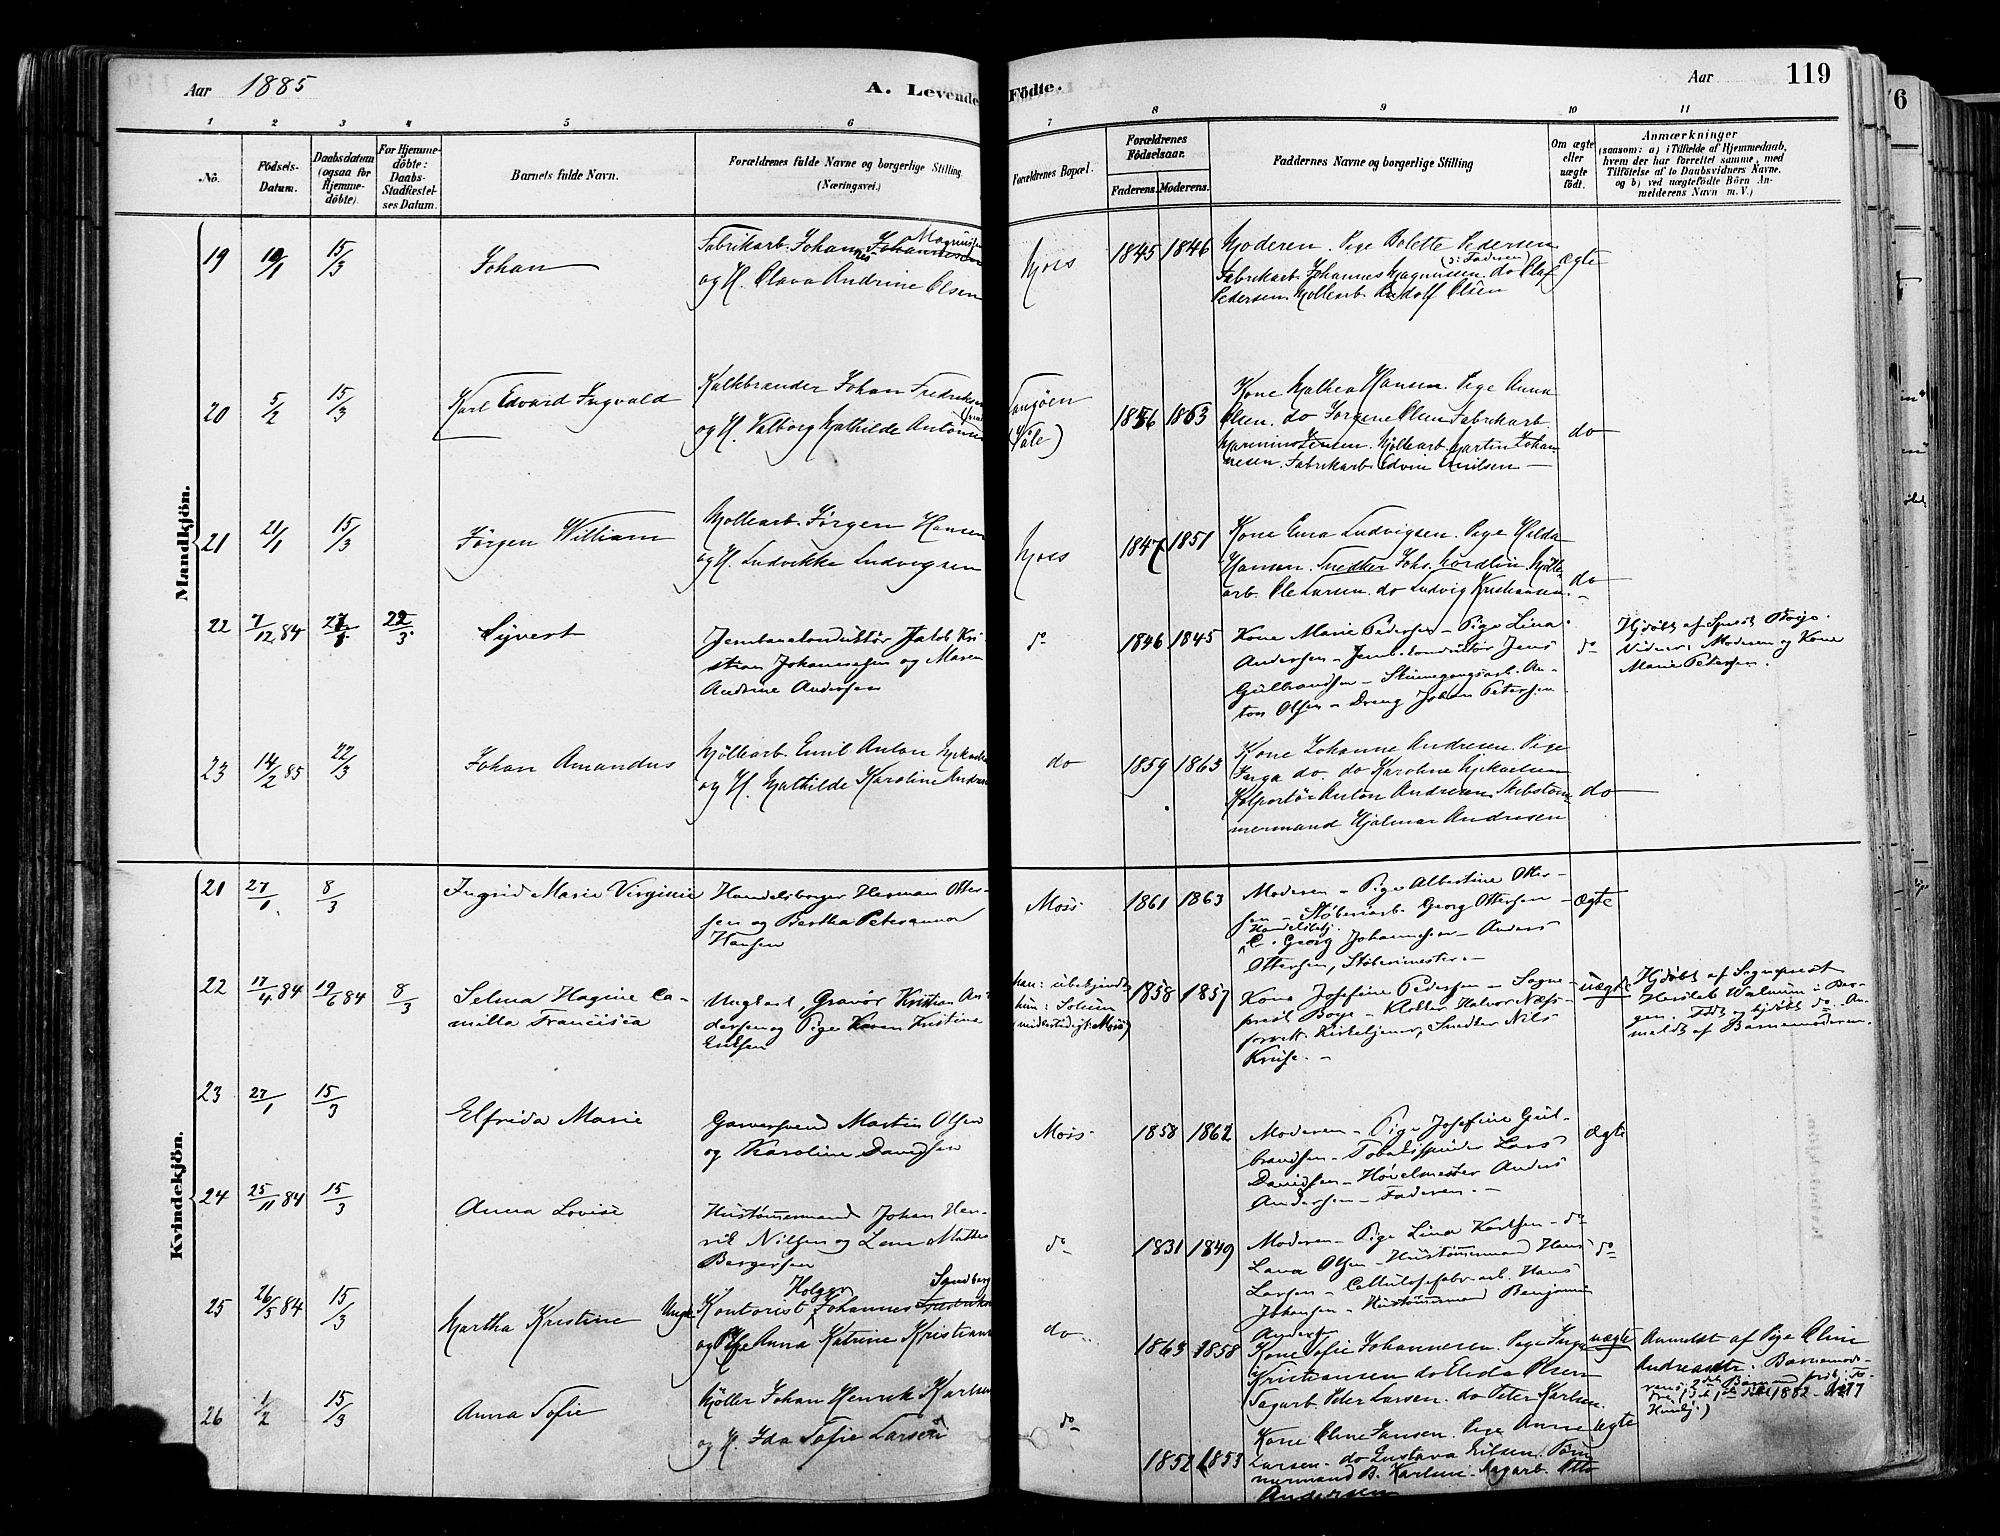 Aar 1885
A. Levende
Födte.
Aar
119
1 2 3 4 5 6 7 8 9 10 11
No.
Födsels-
Datum.
Daabsdatum
(ogsaa for
Hjemme-
döbte).
For Hjemme-
döbte:
Daabs-
Stadfæstel-
ses Datum.
Barnets fulde Navn.
Forældrenes fulde Navne og borgerlige Stilling
(Næringsvei.)
Forældrenes Bopæl.
Forældrenes
Födselsaar.
Faderens. Moderens.
Faddernes Navne og borgerlige Stilling
Om ægte
eller
uægte
födt.
Anmærkninger
(saasom: a) i Tilfælde af Hjemmedaab,
hvem der har forrettet samme, med
Tilföielse af to Daabsvidners Navne.
og b) ved uægtefödte Börn An-
melderens Navn m. V.)
Mandkjön.
19 15/3 Johan
Fabrikarb. Johannes Magnussen
og H. Olava Andrine Olsen
Moss 1845 1846
Moderen. Pige Bolette Pedersen
Fabrikarb. Johannes Magnussen (o: Faderen) do Olaf
Pedersen. Møllearb. Rudolf Olsen
ægte
20 5/2 15/3 Karl Edvard Ingvald
Kalkbrænder Johan Fredriksen
og H. Valborg Mathilde
1856 1863
Kone Mathea Hansen. Pige Anna
Olsen. do Jørgine Olsen Fabrikarb.
Jensen. Møllearb. Martin Johan
nesen. Fabrikarb. Edvin Emilsen
do
21 21/1 15/3 Jørgen William
Møllearb. Jørgen Hansen
og H. Ludvikke Ludvigsen
Moss 1847 1851
Kone Ema Ludvigsen. Pige Hilda
Hansen. Snedker Johs. Nordlin. Mølle
arb. Ole Larsen. do Ludvig Kristiansen.
do
22 7/12 84 22/3 Syvert
Jernbanekonduktør Jakob Kri
stian Johannesen og Maren
Andrine Andersen
do 1846 1845
Kone Marie Pedersen - Pige Lina
Andersen - Jernb.konduktør Jens
Gulbrandsen - An-
ton Olsen - Dreng Johan Petersen
do
Hjdøbt af Sprest Boye.
Vidner: Moderen og Kone
Marie Petersen.
23 14/2 85 22/3 Johan Amandus
Møllearb. Emil Anton
og H. Mathilde Karoline
do 1859 1863
Kone Johanne Andresen. Pige
Inga do. do Karoline Mykaelsen
Kolportør Anton Andresen. Skibstøm-
mermand Hjalmar Andresen
do
Kvindekjön.
21 27/1 8/3 Ingrid Marie Virginie
Handelsborger Herman Otter-
sen og Bertha Peteranna
Hansen
Moss 1861 1863
Moderen - Pige Albertine Otter-
sen - Støberiarb. Georg Ottersen
Handelsbetj.
C. Georg Johannesen - Anders
Ottersen, Støberimester.
ægte
22 17/4 84 19/6 84 8/3 Selma Hagine Ca-
milla Francisca
Ungkarl, Gravør Kristian An-
dersen og Pige Karen Kristine
Eriksen
han: ubekjendt
1858 1857
Kone Josefine Pedersen - Sogne-
prest Boye - Klokker Halvor Næss
forrett. Kirketjener, Snedker Nils
Kruse.
uægte
Hjdøbt af Sogneprest
Hersleb Walnum i Ber-
gen. Født og hjdøbt do. An-
meldt af Barnemoderen.
23 27/1 15/3 Elfrida Marie
Garversvend Martin Olsen
og Karoline Davidsen
Moss 1858 1862
Moderen - Pige Josefine Gul-
brandsen - Tobaksspinder Lars
Davidsen - Høvelmester Anders
Andersen - Faderen.
ægte
24 25/11 84 15/3 Anna Lovise
Hustømmermand Johan Hen-
rik Nilsen og Lene Mathea
Bergersen
do 1831 1849
Moderen - Pige Lina Karlsen - do
Lava Olsen - Hustømmermand Hans
Larsen - Cellulosefabr.arb. Hans
Johansen - Hustømmermand Benjamin
do
25 26/5 84 15/3 Martha Kristine
Ungk. Kontorist Holger Johannes
og Pige Anna Katrine
do 1863 1858
Kone Sofie Johannesen. Pige Inga
Kristiansen do Elida Olsen
Sagarb. Peter Larsen. do Peter Karlsen.
uægte
Anmeldt af Pige Oline
26 1/2 15/3 Anna Sofie
Møller Johan Henrik Karlsen
og H. Ida Sofie Larsen
do 1852 1853
Kone Oline Jansen. Pige Anne
Larsen. do Gustava Nilsen. Tøm
mermand B. Karlsen. Sagarb. Otto
Andersen
ægte